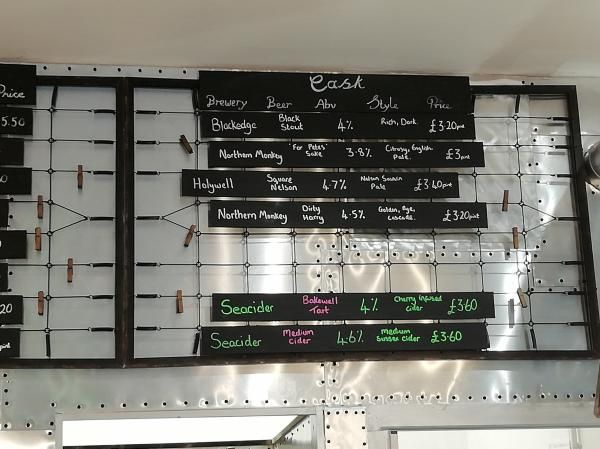 Price
5.50
Cask
Brewery Beer Abv Style Price
Blackedge Black Stout 4% Rich, Dark £3.20 pint
Northern Monkey 'For Petes' Sake 3.8% Citrusy, English Pale. £3 pint
Holywell Square Nelson 4.7% Nelson Sauvin Pale £3.40 pint
Northern Monkey Dirty Harry 4.5% Golden, Rye, Cascade. £3.20 pint
20
Seacider Bakewell Tart 4% Cherry Infused Cider £3.60
Seacider Medium Cider 4.6% Medium Sussex Cider £3.60